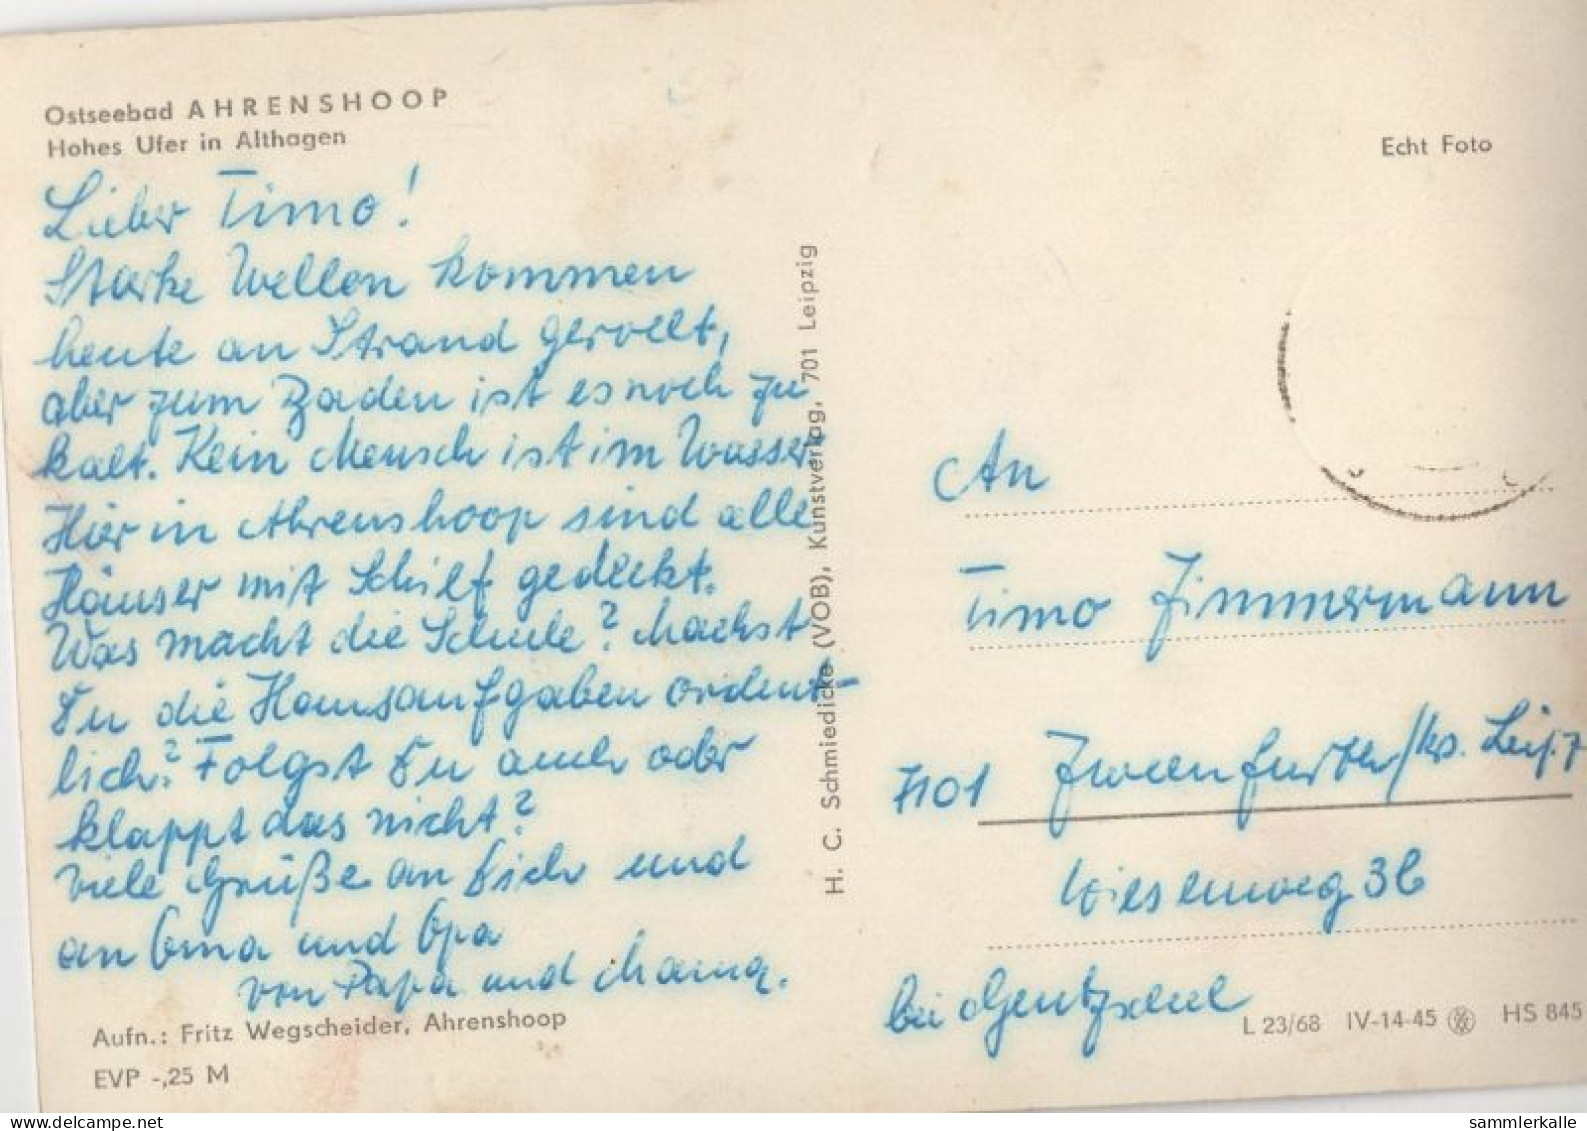 Ostseebad AHRENSHOOP
Hohes Ufer in Althagen
Lieber Timo!
Starke Wellen kommen
heute an Strand gerollt,
aber zum Baden ist es noch zu
kalt. Kein Mensch ist im Wasser
Hier in Ahrenshoop sind alle
Häuser mit Schilf gedeckt.
Was macht die Schule? Machst
Du die Hausaufgaben ordent-
lich? Folgst Du auch oder
klappt das nicht?
Viele Grüße an Dich und
an Oma und Opa
von Papa und Mama.
Aufn.: Fritz Wegscheider, Ahrenshoop
EVP -,25 M
H. C. Schmiedicke (VOB), Kunstverlag, 701 Leipzig
Echt Foto
An
Timo Zimmermann
7101 Zweenfurth/Krs. Leipz
Wiesenweg 3b
bei Gentzsch
L 23/68 IV-14-45 HS 845
sammlerkalle